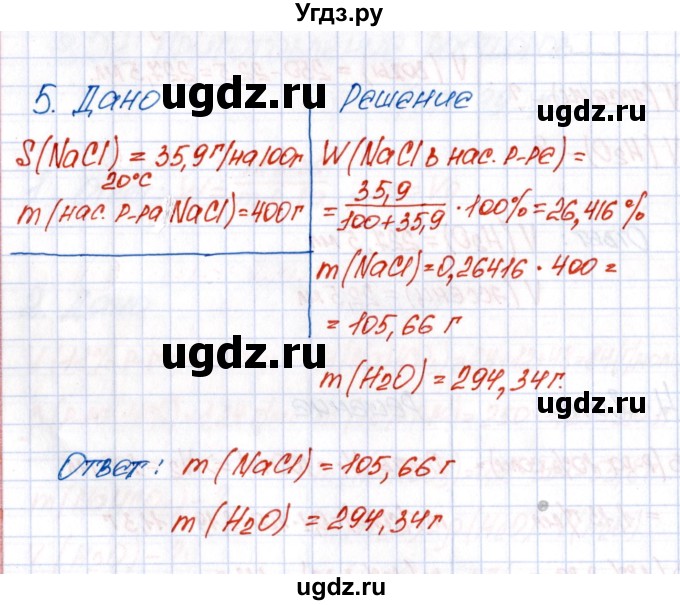 Угдз.ру
5. Дано
Решение
S(NaCl) = 35,9г/на100г
20°C
m(нас. р-ра NaCl)=400г
W(NaCl в нас. р-ре) =
= 35,9 / 100+35,9 · 100% = 26,416 %
m(NaCl)=0,26416 · 400 =
= 105,66 г
m(H2O) = 294,34г.
Ответ: m(NaCl) = 105,66 г
m(H2O) = 294,34г
ugdz.ru
ugdz.ru
ugdz.ru
ugdz.ru
ugdz.ru
ugdz.ru
ugdz.ru